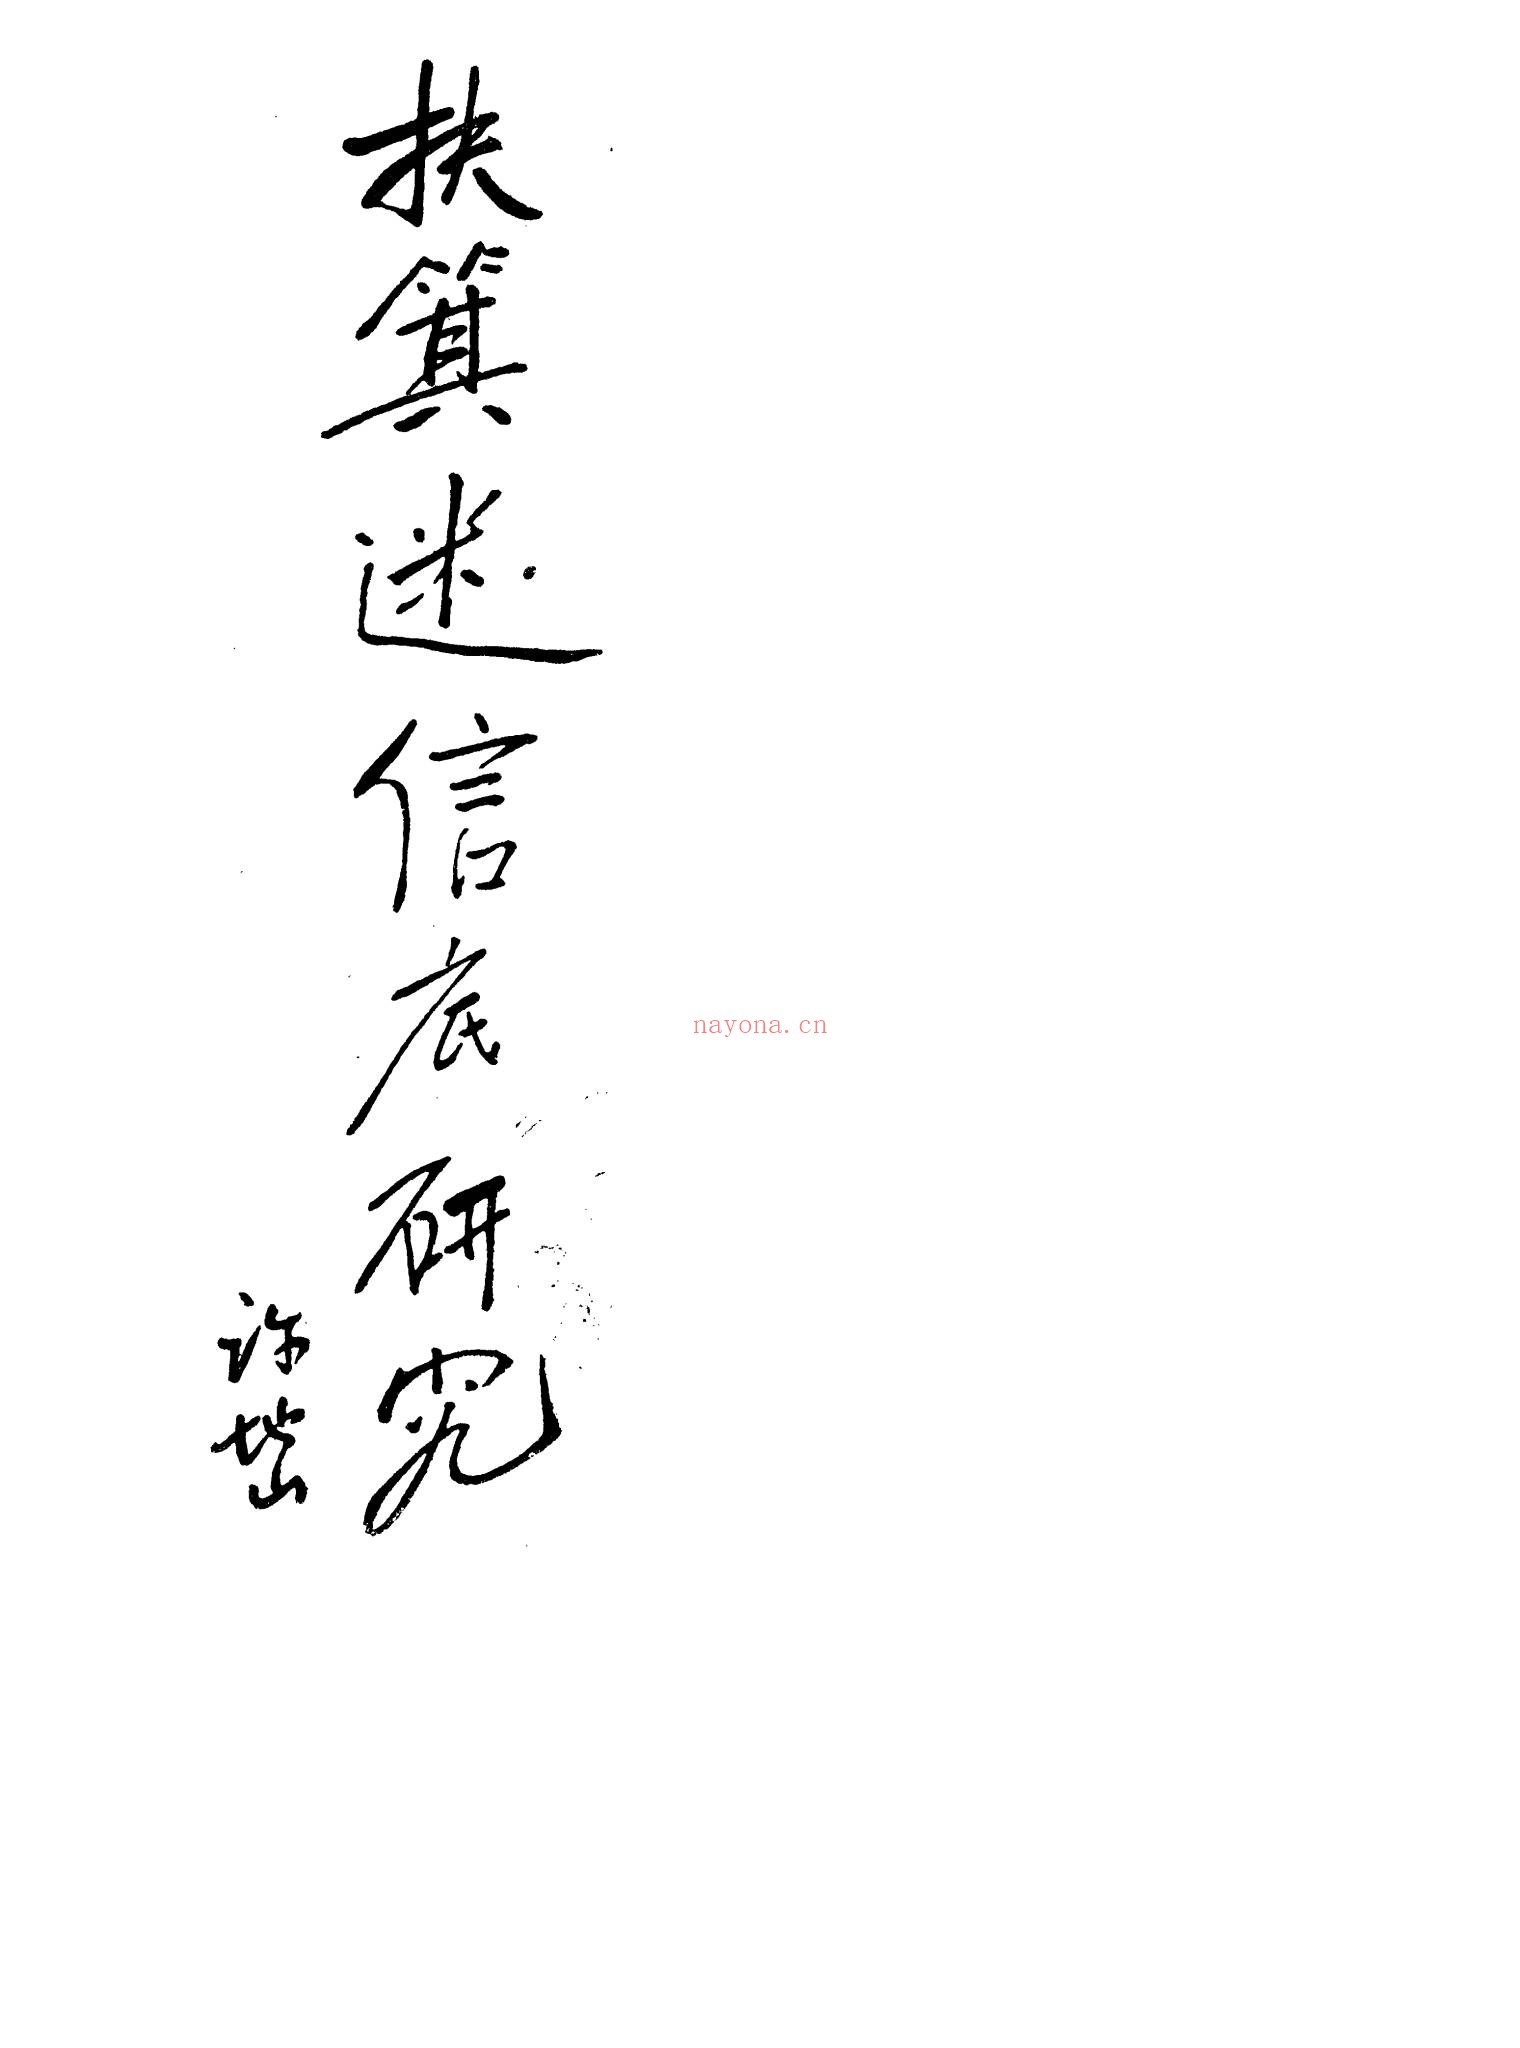 扶箕迷信底研究
许地山
nayona.cn